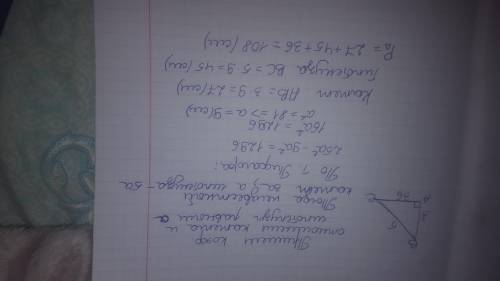 Примем коэф
отношения катета и
гипотенузы равным a
Тогда неизвестный
катет 3a, а гипотенуза - 5a
По т Пифагора:
25a² - 9a² = 1296
16a² = 1296
a² = 81 => a = 9(см)
Катет AB = 3·9 = 27(см)
Гипотенуза BC = 5·9 = 45(см)
P△ = 27+45+36 = 108(см)
B
3
5
A
36
C